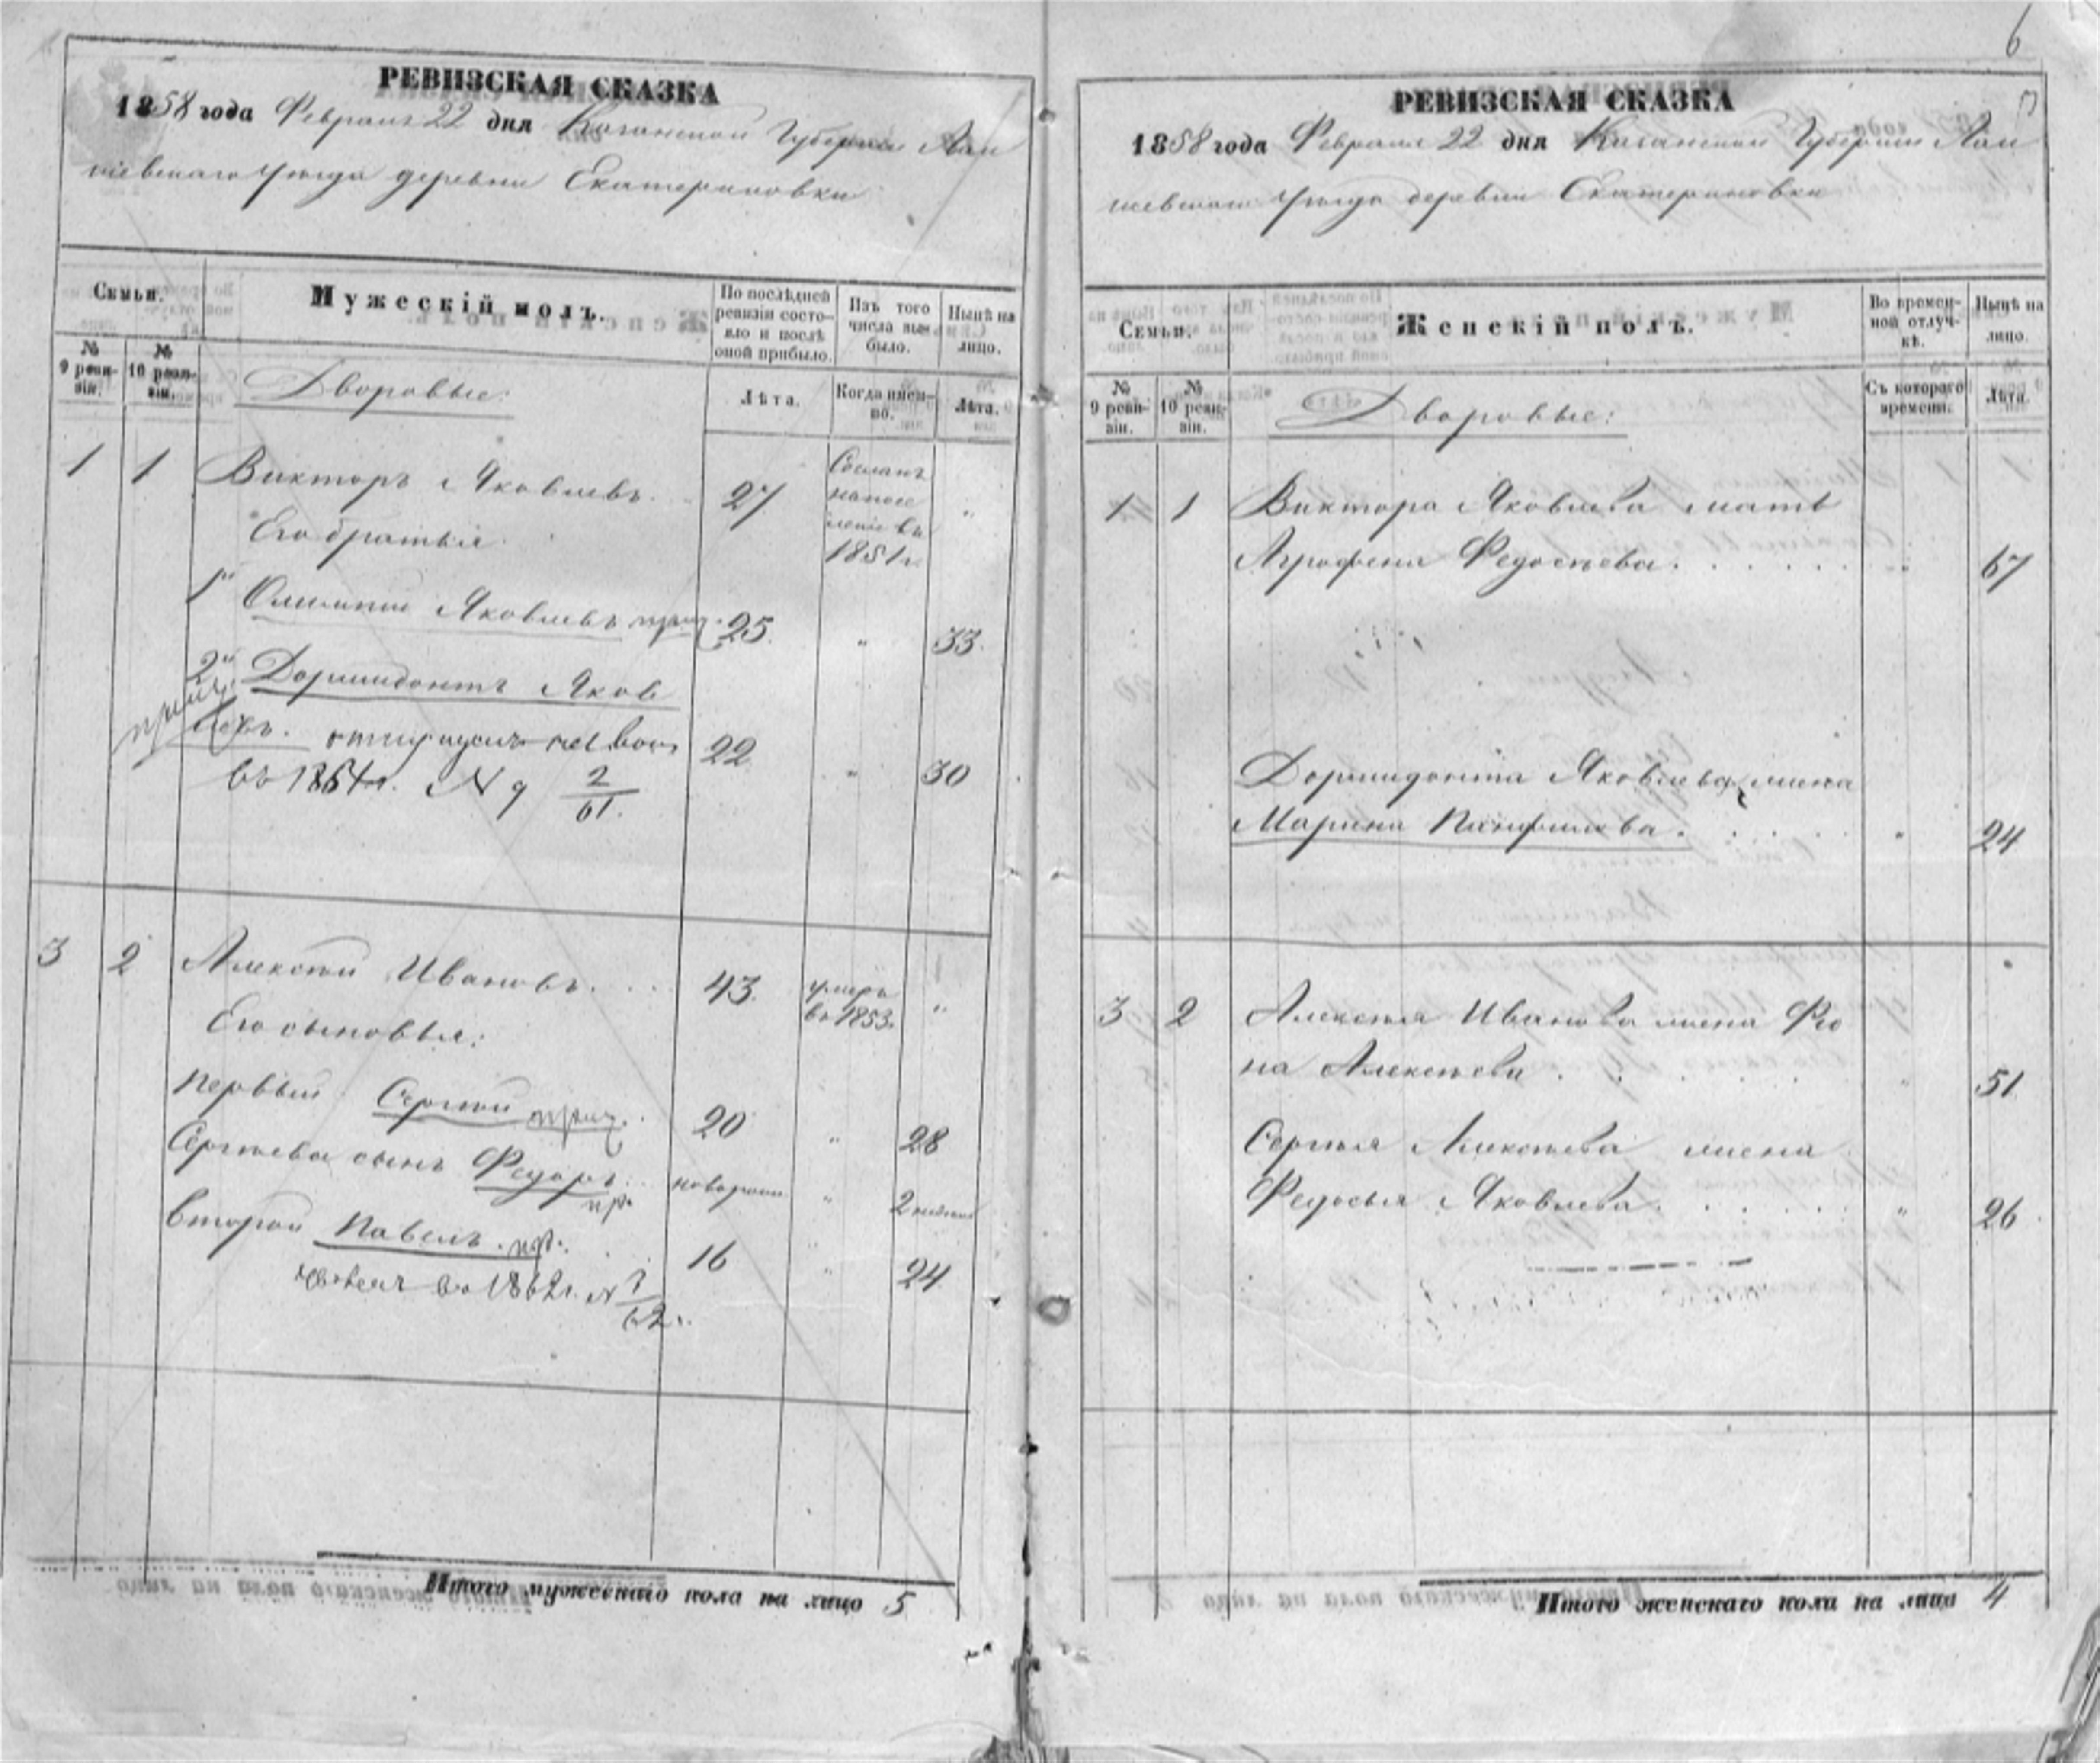 6
РЕВИЗСКАЯ СКАЗКА
1858 года Февраля 22 дня Казанской Губернии Лаи
шевскаго Уѣзда деревни Екатериновки
Семьи.
Мужескій полъ.
По послѣдней ревизіи состояло и послѣ оной прибыло.
Изъ того числа выбыло.
Нынѣ на лицо.
№ 9 ревизіи.
№ 10 ревизіи.
Лѣта.
Когда имен-но.
Лѣта.
Дворовые:
1 1 Викторъ Яковлевъ. 27 Сосланъ на посе леніе въ 1851 г. "
Его братья
1й Олимпій Яковлевъ прич. 25 " 33
2й Дормидонтъ Яков
прич. левъ. отпущенъ на волю 22 " 30
въ 1854 г. № 9 2/61.
3 2 Алексѣй Ивановъ. 43. умеръ въ 1853. "
Его сыновья:
первый Сергѣй прич. 20 " 28
Сергѣева сынъ Федоръ пр. новорож. " 2 недѣли
второй Павелъ. пр. 16 " 24
въ 1862 г. №
62.
Итого мужескаго пола на лицо 5
РЕВИЗСКАЯ СКАЗКА
1858 года Февраля 22 дня Казанской Губерніи Лаи
шевскаго Уѣзда деревни Екатериновки
Семьи.
Женскій полъ.
Во времен-ной отлуч-кѣ.
Нынѣ на лицо.
№ 9 реви-зіи.
№ 10 реви-зіи.
Съ котораго времени.
Лѣта.
Дворовые:
1 1 Виктора Яковлева мать
Аграфена Федосѣева. " 67
Дормидонта Яковлева жена
Марина Панфилова. " 24
3 2 Алексѣя Иванова жена Фео
на Алексѣева " 51
Сергѣя Алексѣева жена
Федосья Яковлева. " 26
Итого женскаго пола на лицо 4